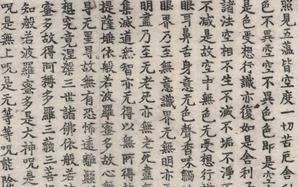 照見五蘊皆空度一切苦厄舍
色不異空空不異色色即是空
是色受想行識亦復如是舍利
諸法空相不生不滅不垢不
不減是故空中無色无受想行
眼耳鼻舌身意无色聲香味觸
眼界乃至无意識界无無明亦
明盡乃至无老死亦無老死盡
集滅道無智亦无得以無所得
提薩埵依般若波羅蜜多故心
㝵无罣㝵故無有恐怖遠離顛
想究竟涅槃三世諸佛依般若
蜜多故得阿耨多羅三藐三菩
知般若波羅蜜多是大神呪是
呪是无上呪是无等等呪能除